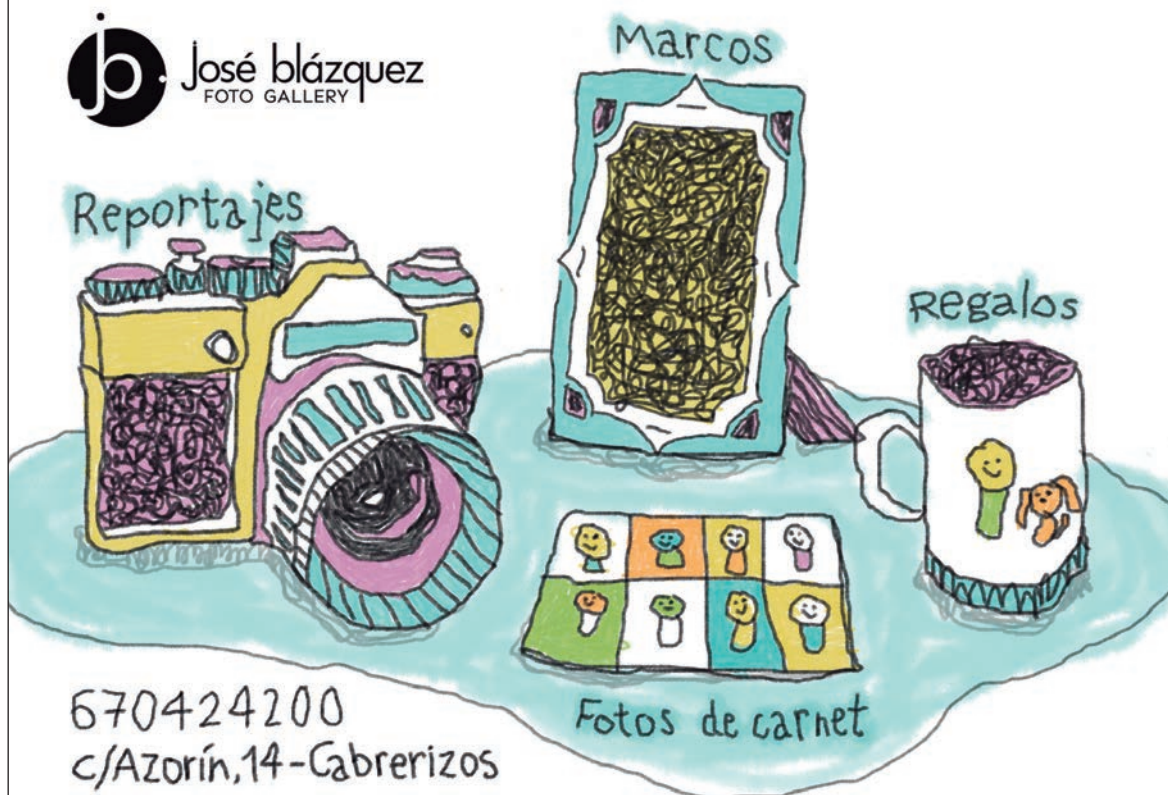 jb.
josé blázquez
FOTO GALLERY
Marcos
Reportajes
Regalos
Fotos de carnet
670424200
c/Azorín,14-Cabrerizos